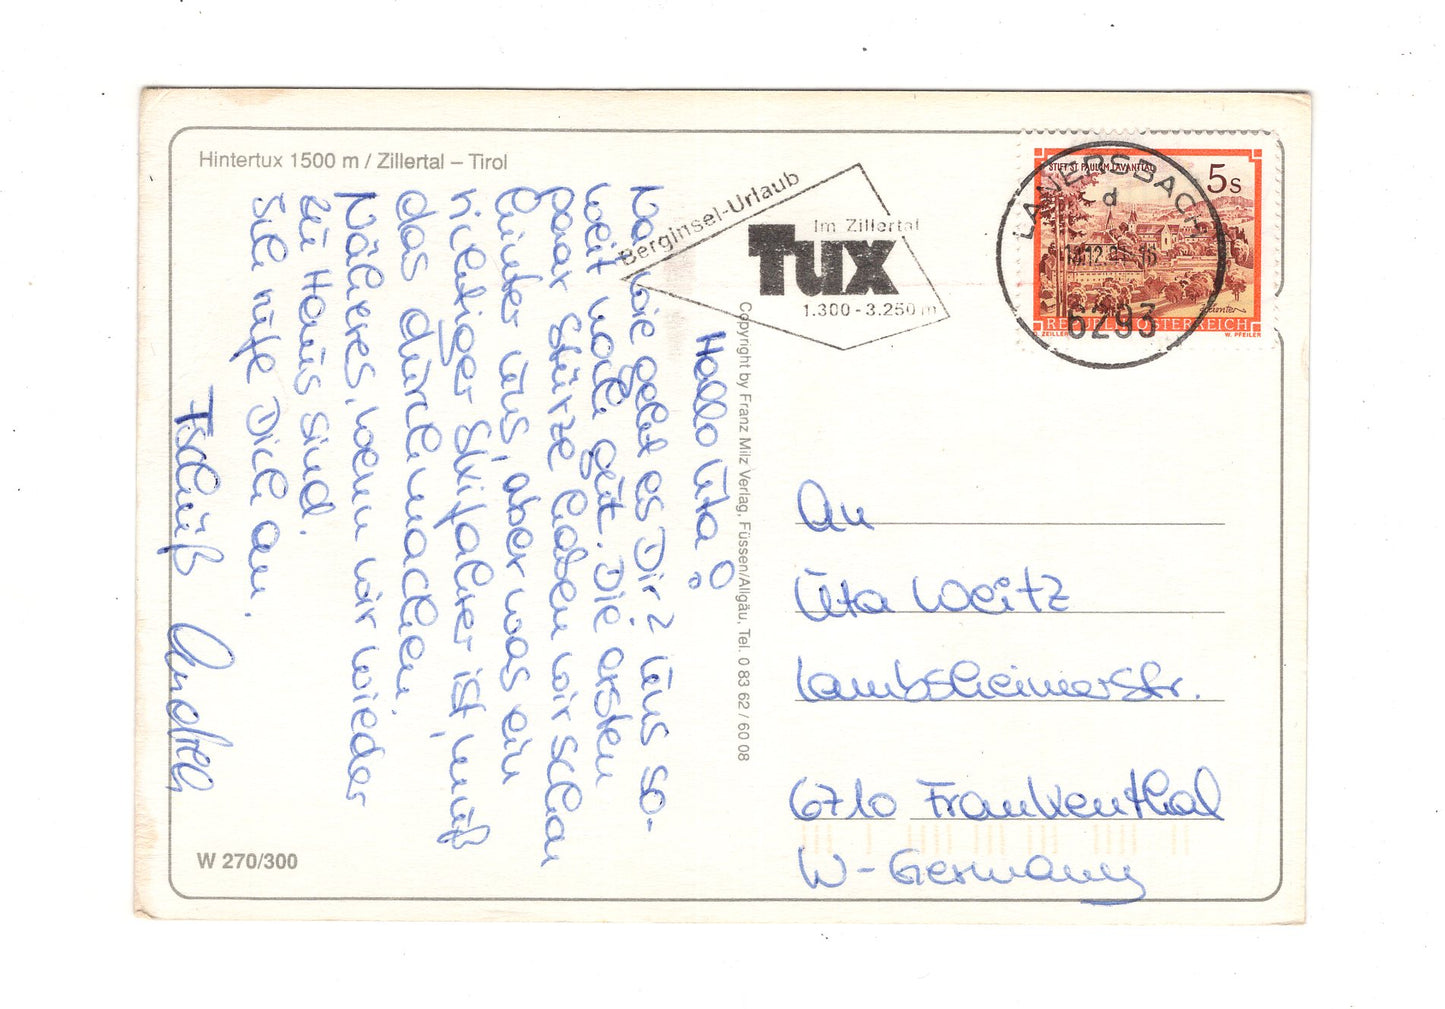 Hintertux 1500 m / Zillertal – Tirol
Hallo Uta!
Na wie geht es Dir? Uns so-
weit noch gut. Die ersten
paar Stürze haben wir schon
hinter uns, aber was ein
richtiger Skifahrer ist, muß
das durchmachen.
Näheres, wenn wir wieder
zu Haus sind.
Ich rufe Dich an.
Tschüß Andrea
W 270/300
Copyright by Franz Milz Verlag, Füssen/Allgäu, Tel. 0 83 62 / 60 08
Berginsel-Urlaub
Im Zillertal
Tux
1.300 - 3.250 m
LANERSBACH
d
6293
STIFT ST. PAUL IM LAVANTTAL
5 s
REPUBLIK ÖSTERREICH
W. PFEILER
An
Uta Weitz
Lambsheimerstr.
6710 Frankenthal
W-Germany